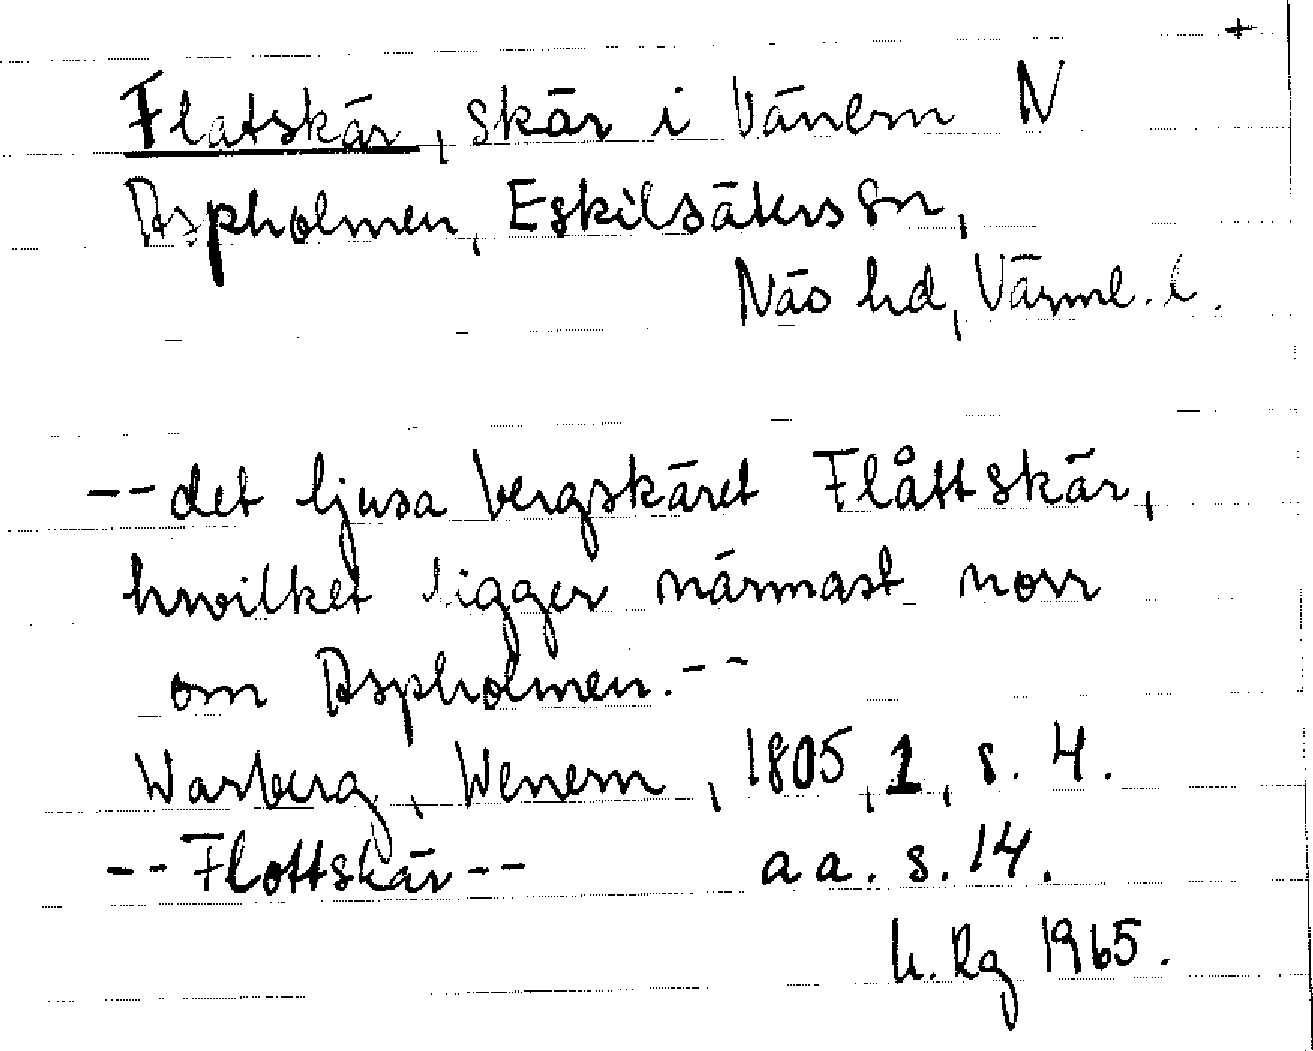 +
Flatskär, skär i Vänern N
Aspholmen, Eskilsäters sn,
Näs hd, Värml. l.
-- det ljusa bergskäret Flåttskär,
hwilket ligger närmast norr
om Aspholmen. --
Warberg, Wenern, 1805, 1, s. 4.
-- Flottskär -- a a. s. 14.
h. Rg 1965.